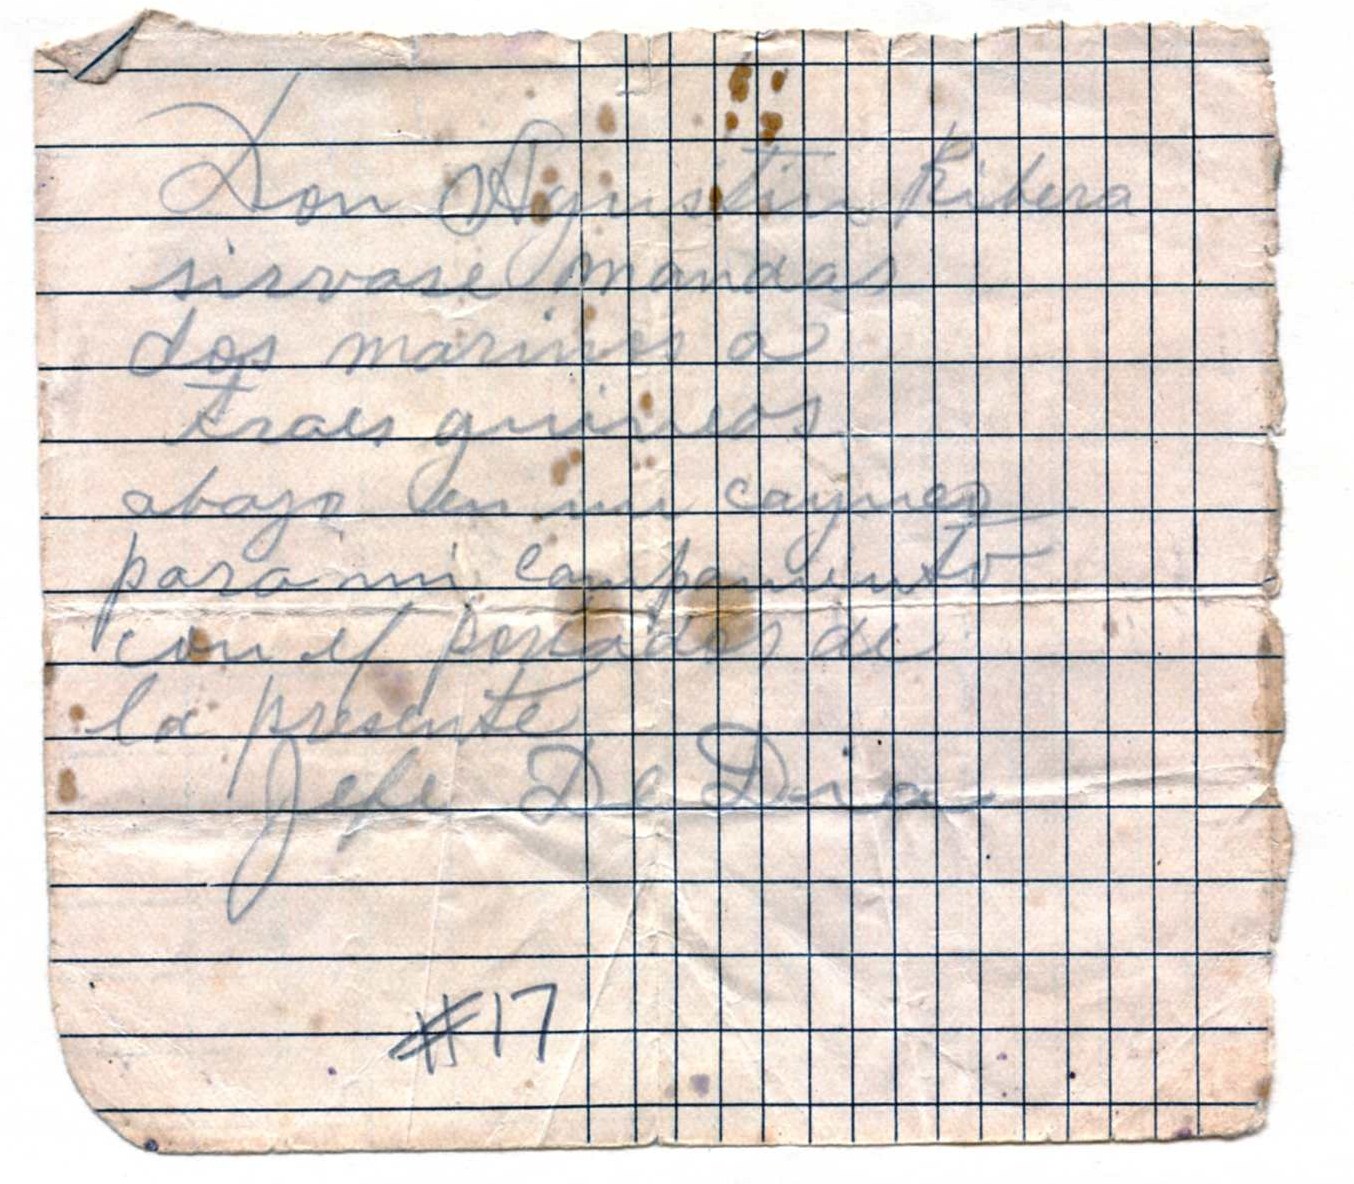 Don Agustin Ribera
sirvase mandar
dos marinos a
traer guineos
abajo en un cayuco
para mi campamento
con el portador de
la presente
Jefe De Dia
#17